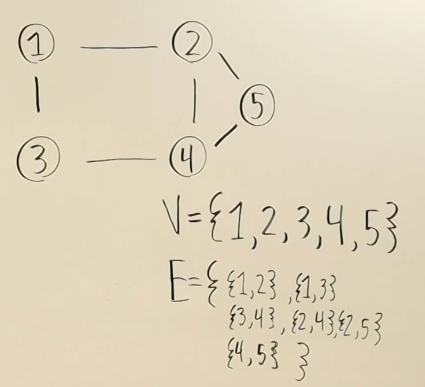 1 2
5
3 4
V={1,2,3,4,5}
E={{1,2},{1,3}
{3,4},{2,4}{2,5}
{4,5} }